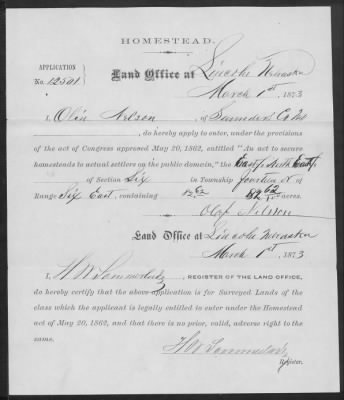 HOMESTEAD.
APPLICATION
No. 12501
Land Office at Lincoln Nebraska
March 1st, 1873
I, Olin Nelson, of Saunders Co
, do hereby apply to enter, under the provisions
of the act of Congress approved May 20, 1862, entitled "An act to secure
homesteads to actual settlers on the public domain," the East ½ North East ¼
of Section Six in Township Fourteen N of
Range Six East, containing acres.
Olof Nilson
Land Office at Lincoln Nebraska
March 1st, 1873
I, REGISTER OF THE LAND OFFICE,
do hereby certify that the above application is for Surveyed Lands of the
class which the applicant is legally entitled to enter under the Homestead
act of May 20, 1862, and that there is no prior, valid, adverse right to the
same.
Register.